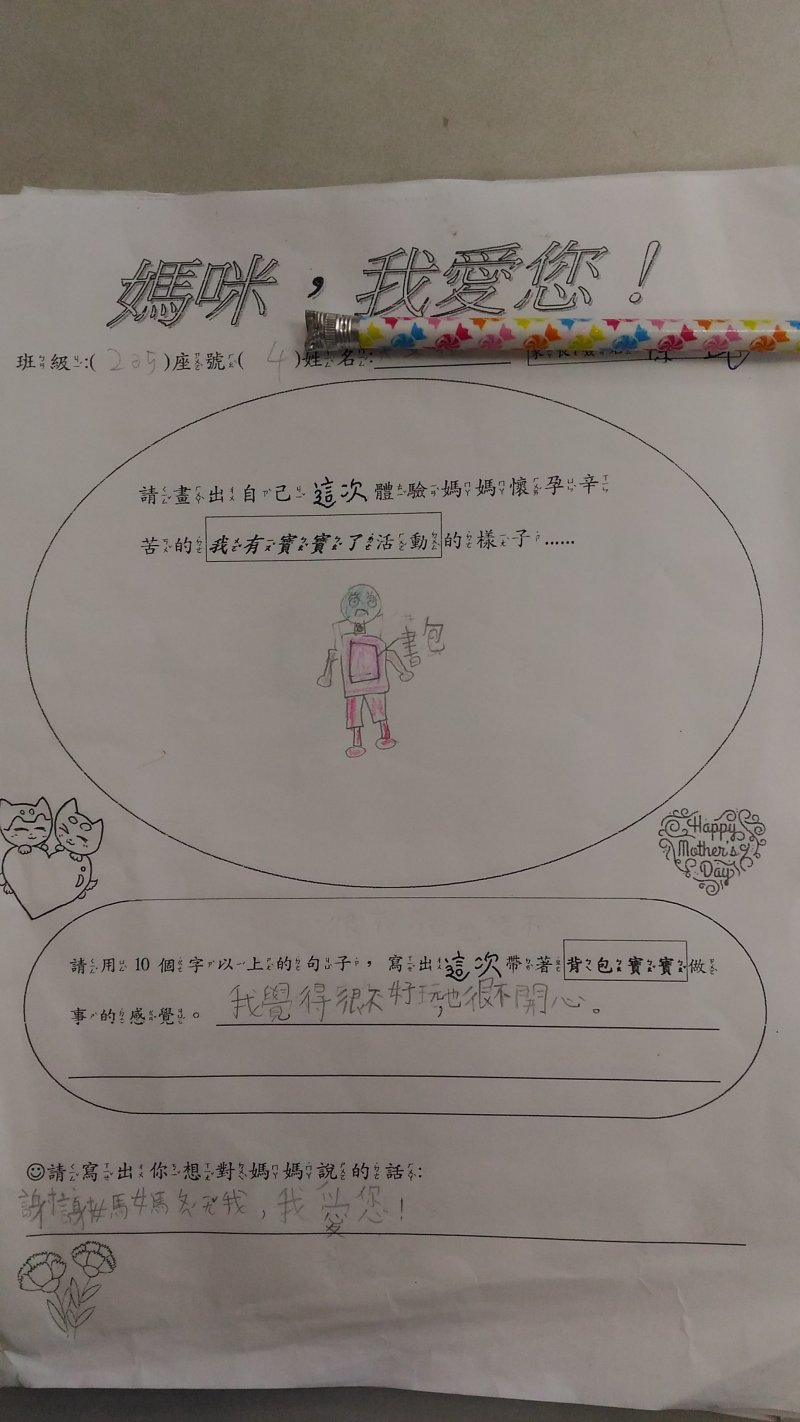 媽咪，我愛您！
班級:( 205 )座號( 4 )姓名:
請畫出自己這次體驗媽媽懷孕辛
苦的我有寶寶了活動的樣子……
書包
Happy
Mother's
Day
請用 10 個字以上的句子，寫出這次帶著背包寶寶做
事的感覺。我覺得很不好玩，也很不開心。
☺請寫出你想對媽媽說的話:
謝謝媽媽 我，我愛您！